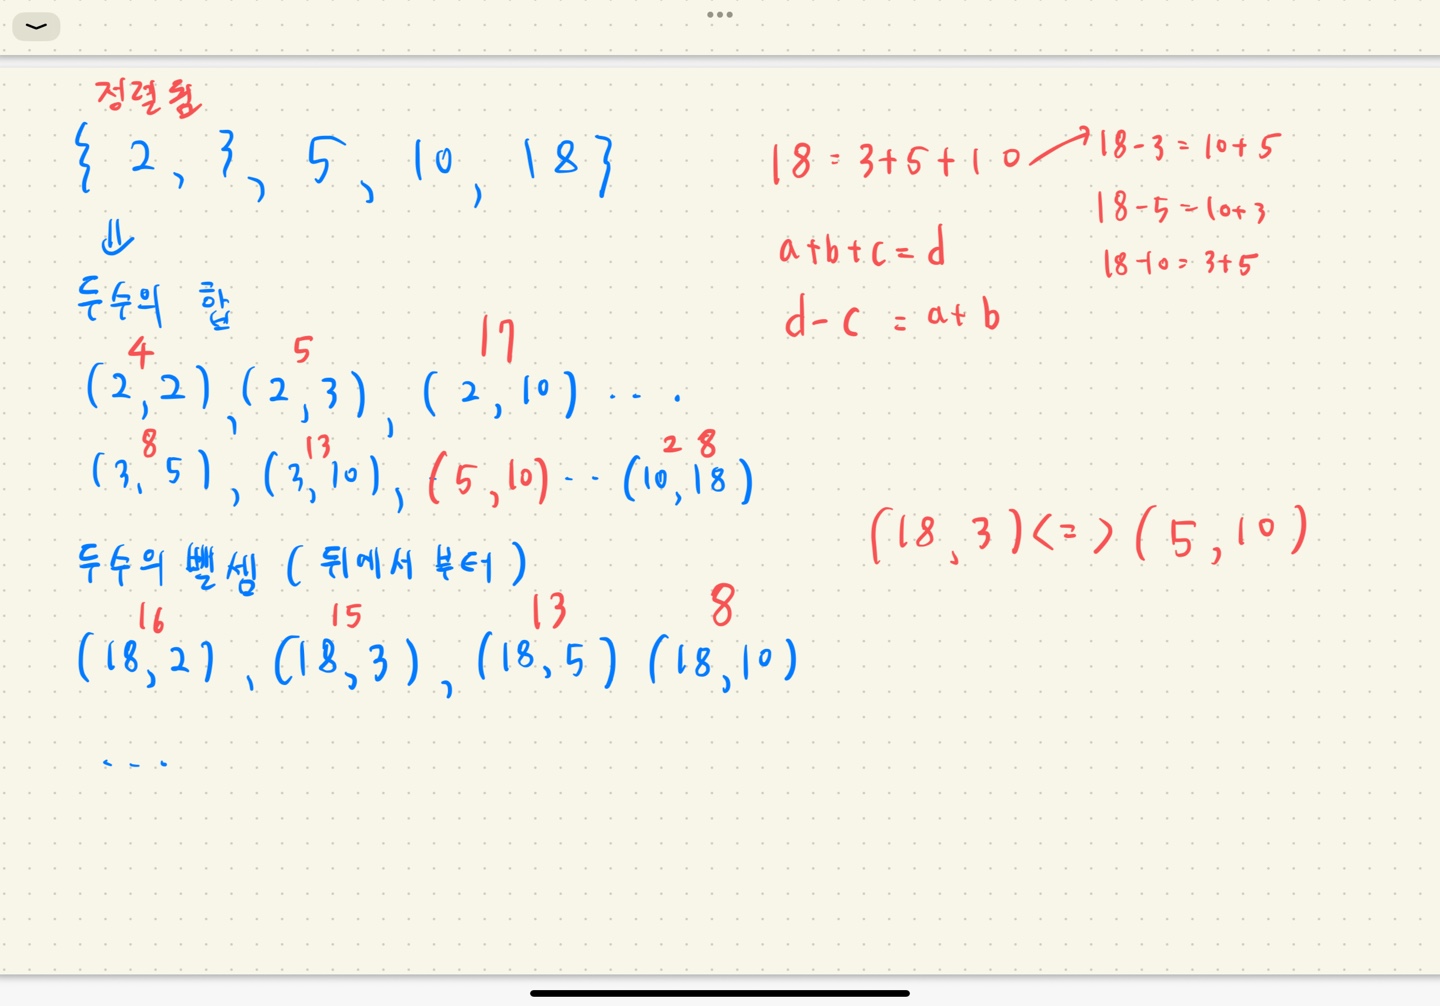 정렬됨
{ 2, 3, 5, 10, 18 }
⇓
두수의 합
4 5 17
(2,2), (2,3), (2,10) ...
8 13 28
(3,5), (3,10), (5,10) ·· (10,18)
두수의 뺄셈 ( 뒤에서 부터 )
16 15 13 8
(18,2), (18,3), (18,5) (18,10)
...
18 = 3+5+10 → 18-3 = 10+5
18-5 = 10+3
18-10 = 3+5
a+b+c = d
d-c = a+b
(18,3) <=> (5,10)